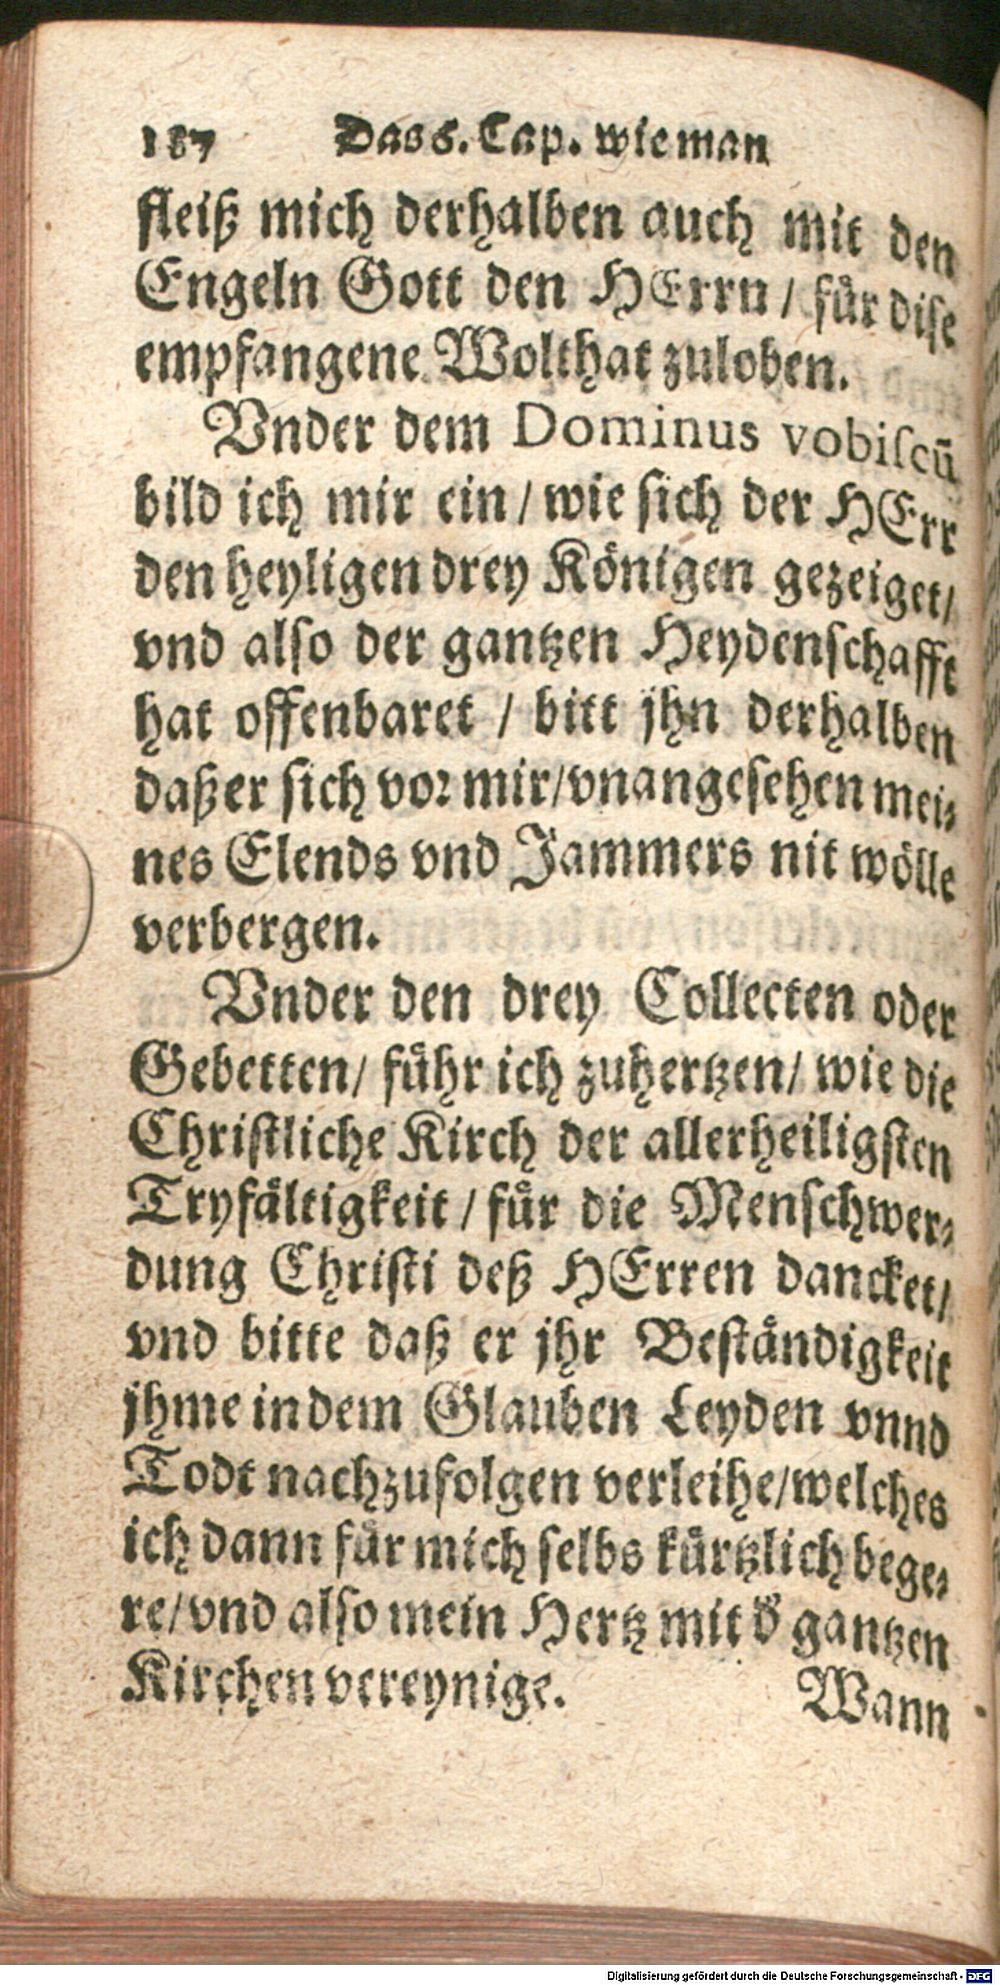 187 Das 6. Cap. wie man
fleiß mich derhalben auch mit den
Engeln Gott den HErrn / fuͤr dise
empfangene Wolthat zuloben.
Vnder dem Dominus vobiscū
bild ich mir ein / wie sich der HErr
den heyligen drey Koͤnigen gezeiget/
vnd also der gantzen Heydenschafft
hat offenbaret / bitt jhn derhalben
daß er sich vor mir/vnangesehen mei⸗
nes Elends vnd Jammers nit woͤlle
verbergen.
Vnder den drey Collecten oder
Gebetten/ fuͤhr ich zuhertzen/ wie die
Christliche Kirch der allerheiligsten
Tryfaͤltigkeit / fuͤr die Menschwer⸗
dung Christi deß HErren dancket/
vnd bitte daß er jhr Bestaͤndigkeit
jhme in dem Glauben Leyden vnnd
Todt nachzufolgen verleihe/welches
ich dann fuͤr mich selbs kuͤrtzlich bege⸗
re/vnd also mein Hertz mit d̓ gantzen
Kirchen vereynige. Wann
Digitalisierung gefördert durch die Deutsche Forschungsgemeinschaft - DFG